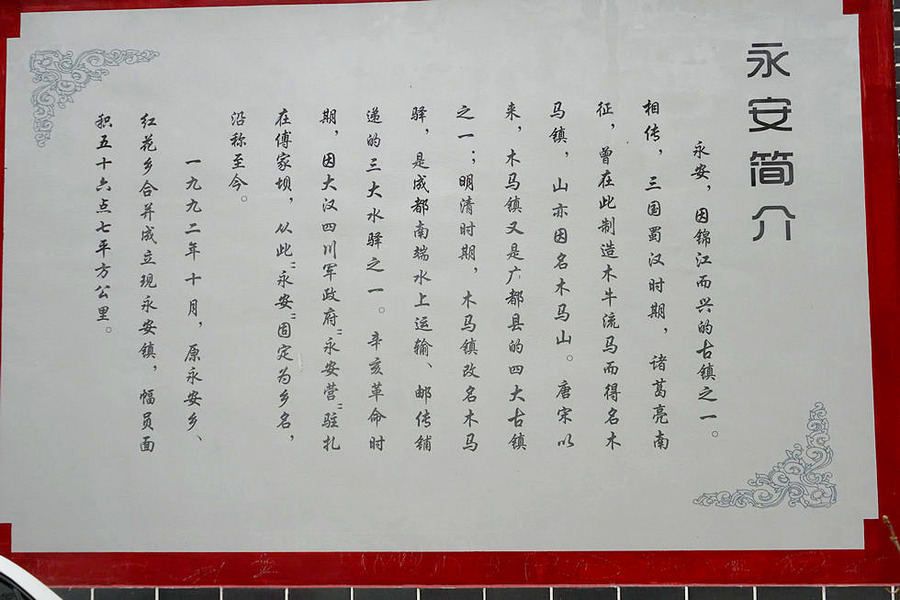 永安简介
永安，因锦江而兴的古镇之一。
相传，三国蜀汉时期，诸葛亮南
征，曾在此制造木牛流马而得名木
马镇，山亦因名木马山。唐宋以
来，木马镇又是广都县的四大古镇
之一；明清时期，木马镇改名木马
驿，是成都南端水上运输、邮传铺
递的三大水驿之一。辛亥革命时
期，因大汉四川军政府"永安营"驻扎
在傅家坝，从此"永安"固定为乡名，
沿称至今。
一九九二年十月，原永安乡、
红花乡合并成立现永安镇，幅员面
积五十六点七平方公里。